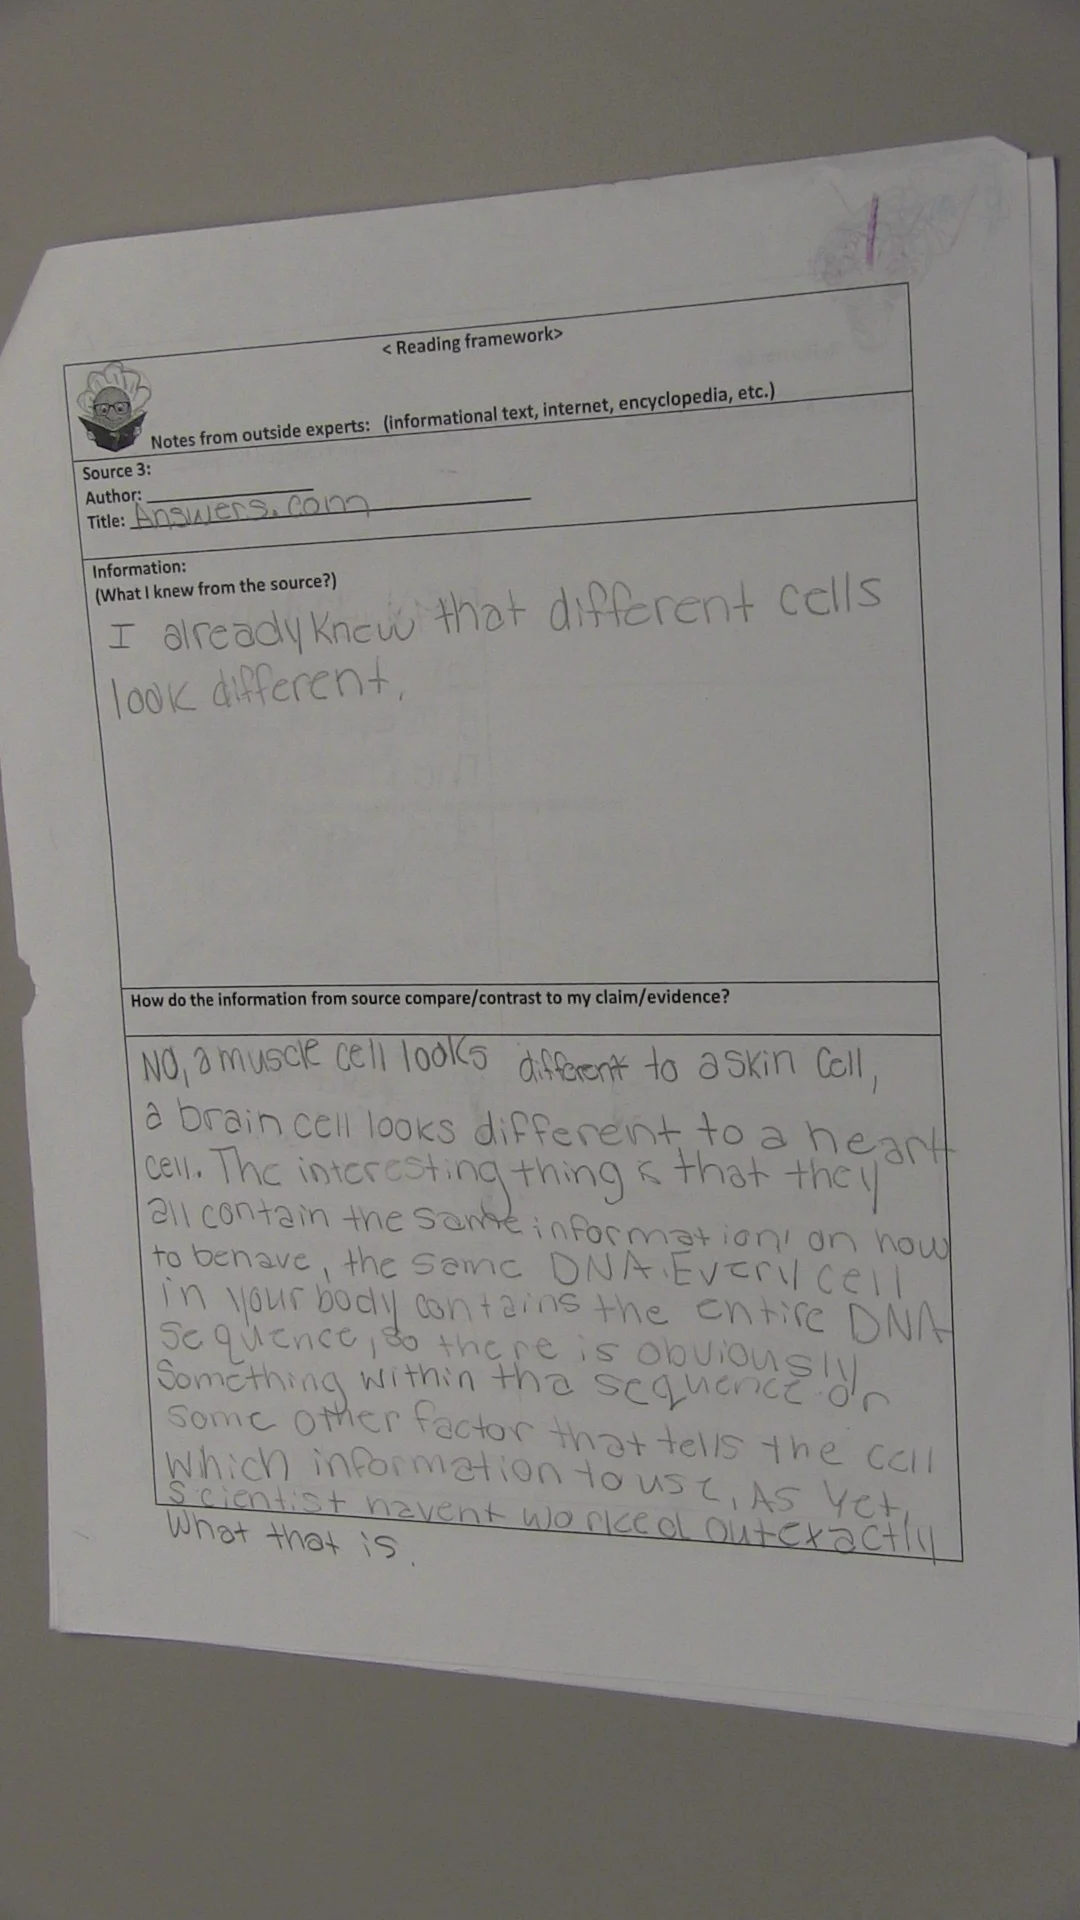 < Reading framework>
Notes from outside experts: (informational text, internet, encyclopedia, etc.)
Source 3:
Author: 
Title: Answers.com
Information:
(What I knew from the source?)
I already knew that different cells
look different.
How do the information from source compare/contrast to my claim/evidence?
NO, a muscle cell looks different to a skin cell,
a brain cell looks different to a heart
cell. The interesting thing is that they
all contain the same information on how
to behave, the same DNA. Every cell
in your body contains the entire DNA
sequence, so there is obviously
something within the sequence or
some other factor that tells the cell
which information to use, As yet,
scientist havent worked out exactly
what that is.